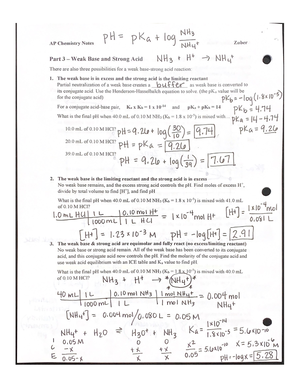 AP Chemistry Notes
pH = pKa + log NH₃/NH₄⁺
Zuber
Part 3 – Weak Base and Strong Acid NH₃ + H⁺ → NH₄⁺
There are also three possibilities for a weak base-strong acid reaction:
1. The weak base is in excess and the strong acid is the limiting reactant
Partial neutralization of a weak base creates a buffer as weak base is converted to
its conjugate acid. Use the Henderson-Hasselbalch equation to solve: (the pKa value will be
for the conjugate acid)
pKb = -log(1.8x10⁻⁵)
pKb = 4.74
For a conjugate acid-base pair, Ka x Kb = 1 x 10⁻¹⁴ and pKa + pKb = 14
pKa = 14 - 4.74
pKa = 9.26
What is the final pH when 40.0 mL of 0.10 M NH₃ (Kb = 1.8 x 10⁻⁵) is mixed with
10.0 mL of 0.10 M HCl? pH = 9.26 + log(30/10) = 9.74
20.0 mL of 0.10 M HCl? pH = pKa = 9.26
39.0 mL of 0.10 M HCl? pH = 9.26 + log(1/39) = 7.67
2. The weak base is the limiting reactant and the strong acid is in excess
No weak base remains, and the excess strong acid controls the pH. Find moles of excess H⁺,
divide by total volume to find [H⁺], and find pH.
What is the final pH when 40.0 mL of 0.10 M NH₃ (Kb = 1.8 x 10⁻⁵) is mixed with 41.0 mL
of 0.10 M HCl?
1.0 mL HCl | 1 L | 0.10 mol H⁺ = 1x10⁻⁴ mol H⁺ [H⁺] = 1x10⁻⁴ mol
1000 mL | 1 L HCl 0.081 L
[H⁺] = 1.23 x10⁻³ M pH = -log[H⁺] = 2.91
3. The weak base & strong acid are equimolar and fully react (no excess/limiting reactant)
No weak base or strong acid remain. All of the weak base has been converted to its conjugate
acid, and this conjugate acid now controls the pH. Find the molarity of the conjugate acid and
use weak acid equilibrium with an ICE table and Ka value to find pH.
What is the final pH when 40.0 mL of 0.10 M NH₃ (Kb = 1.8 x 10⁻⁵) is mixed with 40.0 mL
of 0.10 M HCl?
NH₃ + H⁺ → NH₄⁺
40 mL | 1 L | 0.10 mol NH₃ | 1 mol NH₄⁺ = 0.004 mol
1000 mL | 1 L | 1 mol NH₃
[NH₄⁺] = 0.004 mol / 0.080 L = 0.05 M
NH₄⁺ + H₂O ⇌ H₃O⁺ + NH₃ Ka = 1x10⁻¹⁴/1.8x10⁻⁵ = 5.6x10⁻¹⁰
I 0.05 M 0 0
C -x +x +x
E 0.05-x x x
x²/0.05 = 5.6x10⁻¹⁰ x = 5.3x10⁻⁶ M
pH = -log x = 5.28